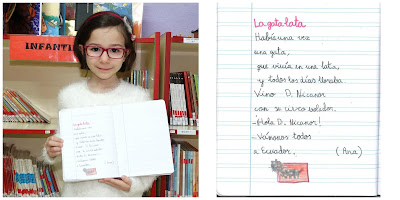 INFANTIL
La gata lata
Había una vez
una gata,
que vivía en una lata,
y todos los días lloraba.
Vino D. Nicanor
con su circo volador.
-¡Hola D. Nicanor!
-Vámonos todos
a Ecuador. (Ana)